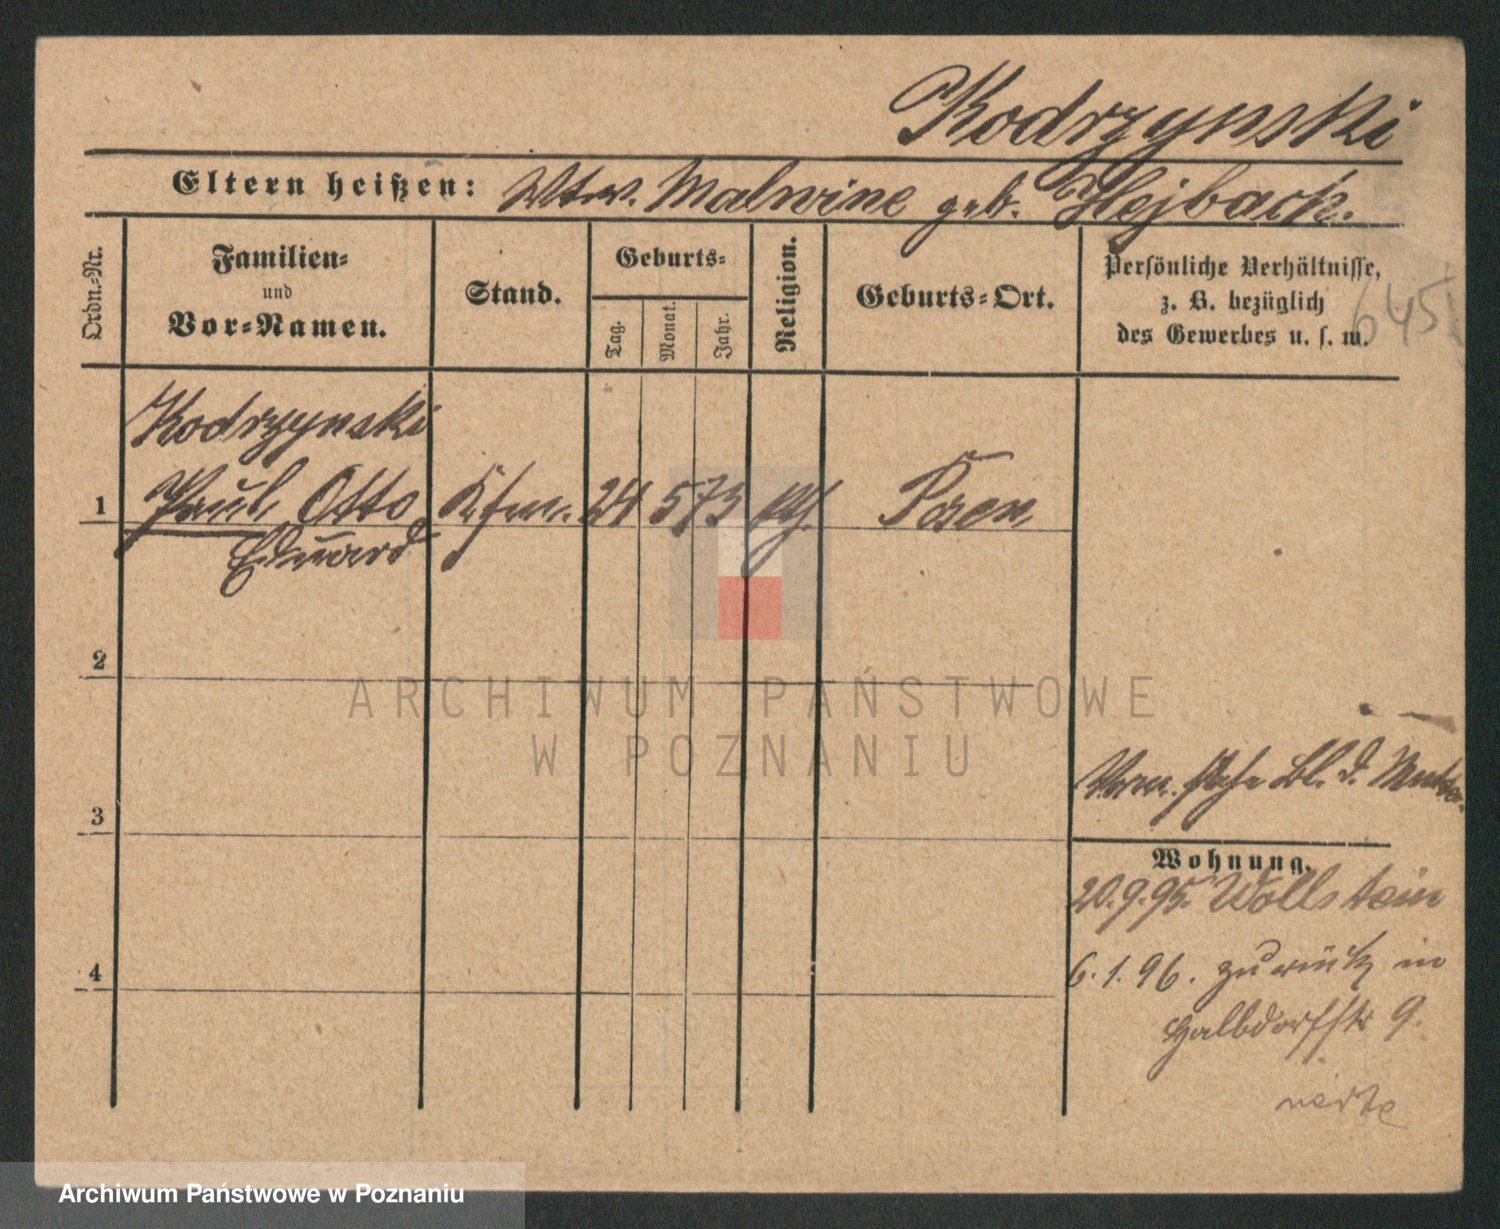 Kodrzynski
Eltern heißen: Wtw. Malwine geb. Hejback.
Ordn.-Nr.
Familien-
und
Vor-Namen.
Stand.
Geburts-
Tag.
Monat.
Jahr.
Religion.
Geburts-Ort.
Persönliche Verhältnisse,
z. B. bezüglich
des Gewerbes u. s. w.
645
Kodrzynski
1 Paul Otto Kfm. 24 5 73 Posen
Eduard
2
ARCHIWUM PAŃSTWOWE
W POZNANIU
Bl. d. Mutter
3
Wohnung.
20.9.95. Wollstein
4
6.1.96. zurück in
Halbdorfstr 9.
Archiwum Państwowe w Poznaniu